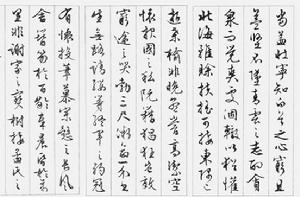 當益壯寧知白首之心窮且
益堅不墜青雲之志酌貪
泉而覺爽處涸轍以猶懽
北海雖賒扶搖可接東隅已
逝桑榆非晚孟嘗高潔空
懷報國之阮籍猖狂豈效
窮途之哭勃三尺微命一介書
生無路請纓等終軍之弱冠
有懷投筆慕宗愨之長風
舍簪笏於百齡奉晨昏於萬
里非謝家之寶樹接孟氏之